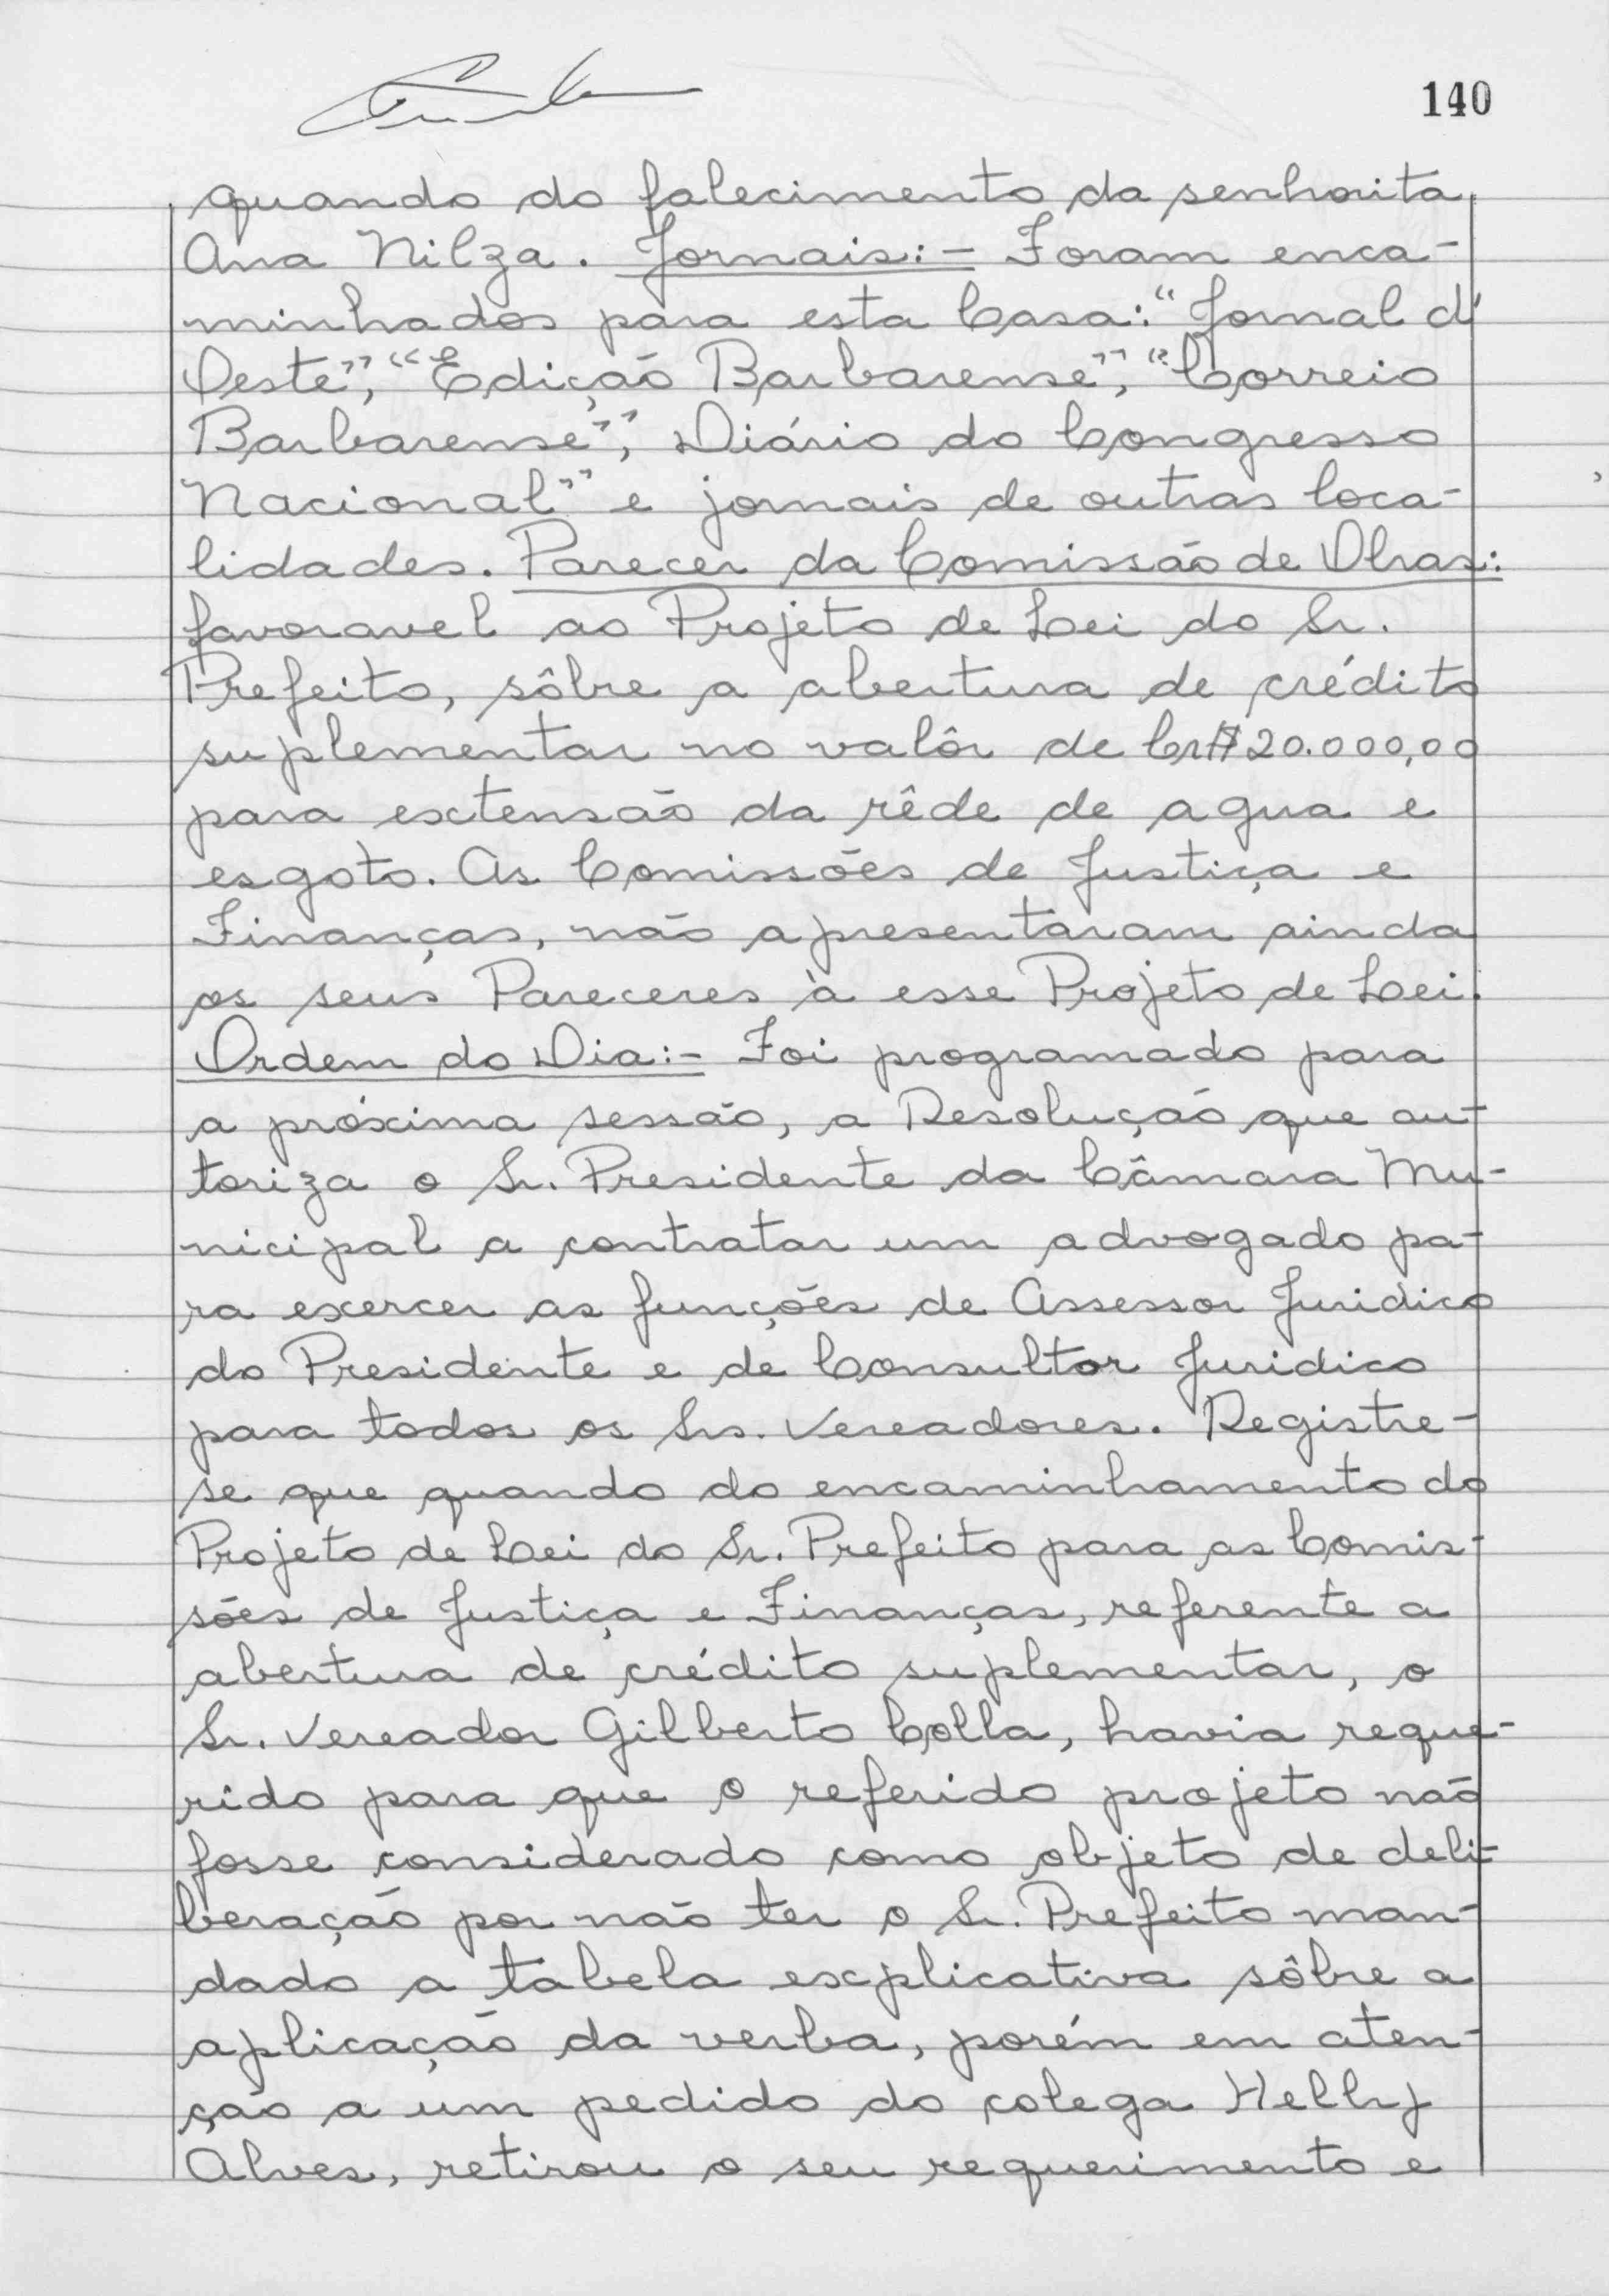 140
quando do falecimento da senhorita
Ana Nilza. Jornais:- Foram enca-
minhados para esta Casa: "Jornal d'
Oeste", "Edição Barbarense", "Correio
Barbarense", Diário do Congresso
Nacional" e jornais de outras loca-
lidades. Parecer da Comissão de Obras:
favoravel ao Projeto de Lei do Sr.
Prefeito, sôbre a abertura de crédito
suplementar no valôr de Cr$ 20.000,00
para extensão da rêde de agua e
esgoto. As Comissões de Justiça e
Finanças, não apresentaram ainda
os seus Pareceres à esse Projeto de Lei.
Ordem do Dia:- Foi programado para
a próxima sessão, a Resolução que au-
toriza o Sr. Presidente da Câmara Mu-
nicipal a contratar um advogado pa-
ra exercer as funções de Assessor Juridico
do Presidente e de Consultor Juridico
para todos os Srs. Vereadores. Registre-
se que quando do encaminhamento do
Projeto de Lei do Sr. Prefeito para as Comis-
sões de Justiça e Finanças, referente a
abertura de crédito suplementar, o
Sr. Vereador Gilberto Colla, havia reque-
rido para que o referido projeto não
fosse considerado como objeto de deli-
beração por não ter o Sr. Prefeito man-
dado a tabela explicativa sôbre a
aplicação da verba, porém em aten-
ção a um pedido do colega Helly
Alves, retirou o seu requerimento e